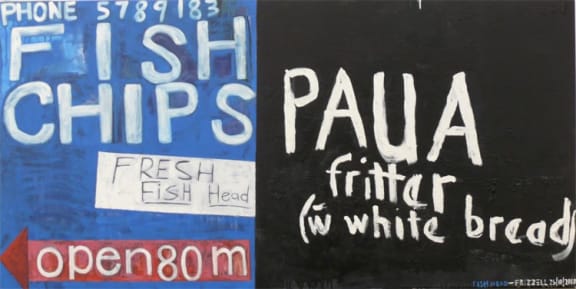 PHONE 5789183
FISH
CHIPS
FRESH
FISH Head
open 80 m
PAUA
fritter
(w̄ white bread)
FISH HEAD — FRIZZELL